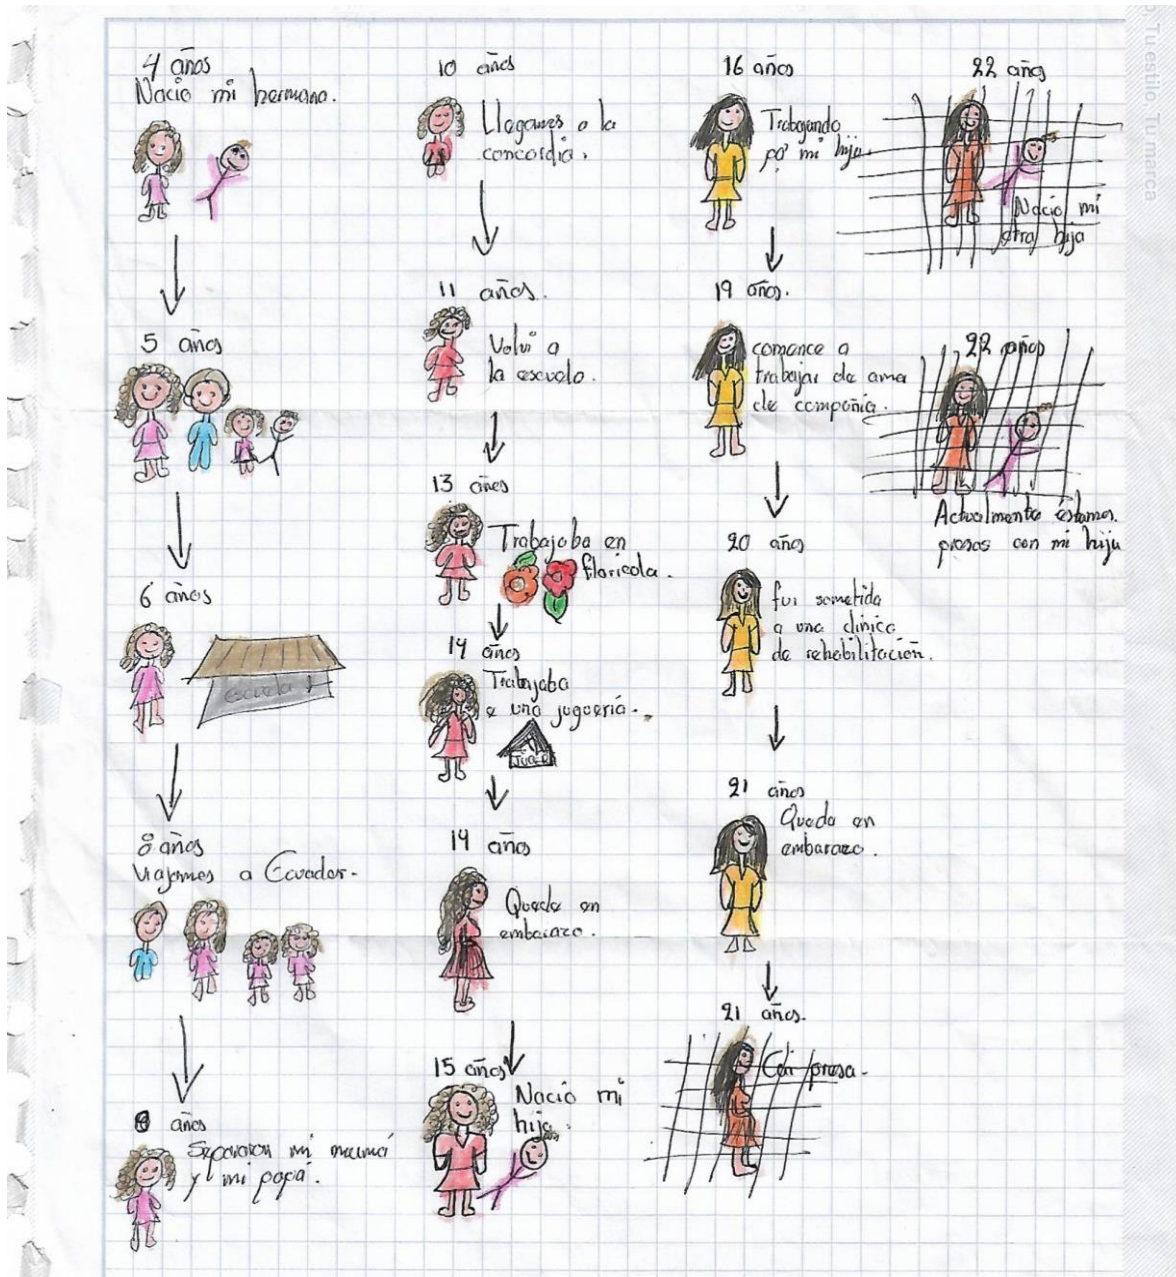 4 años
Nacio mi hermano.
5 años
6 años
escuela
8 años
viajamos a Ecuador.
años
Separaron mi mamá
y mi papá.
10 años
Llegamos a la
concordia.
11 años.
Volvi a
la escuela.
13 años
Trabajaba en
floricola.
14 años
Trabajaba
e una jugueria.
14 años
Quede en
embarazo.
15 años
Nacio mi
hija.
16 años
Trabajando
pa mi hija.
19 años.
comence a
trabajar de ama
de compañia.
20 años
fui sometida
a una clinica
de rehabilitación.
21 años
Quede en
embarazo.
21 años.
Cai presa.
22 años
Nacio mi
otra hija
22 años
Actualmente estamos
presas con mi hija
Tu estilo Tu marca